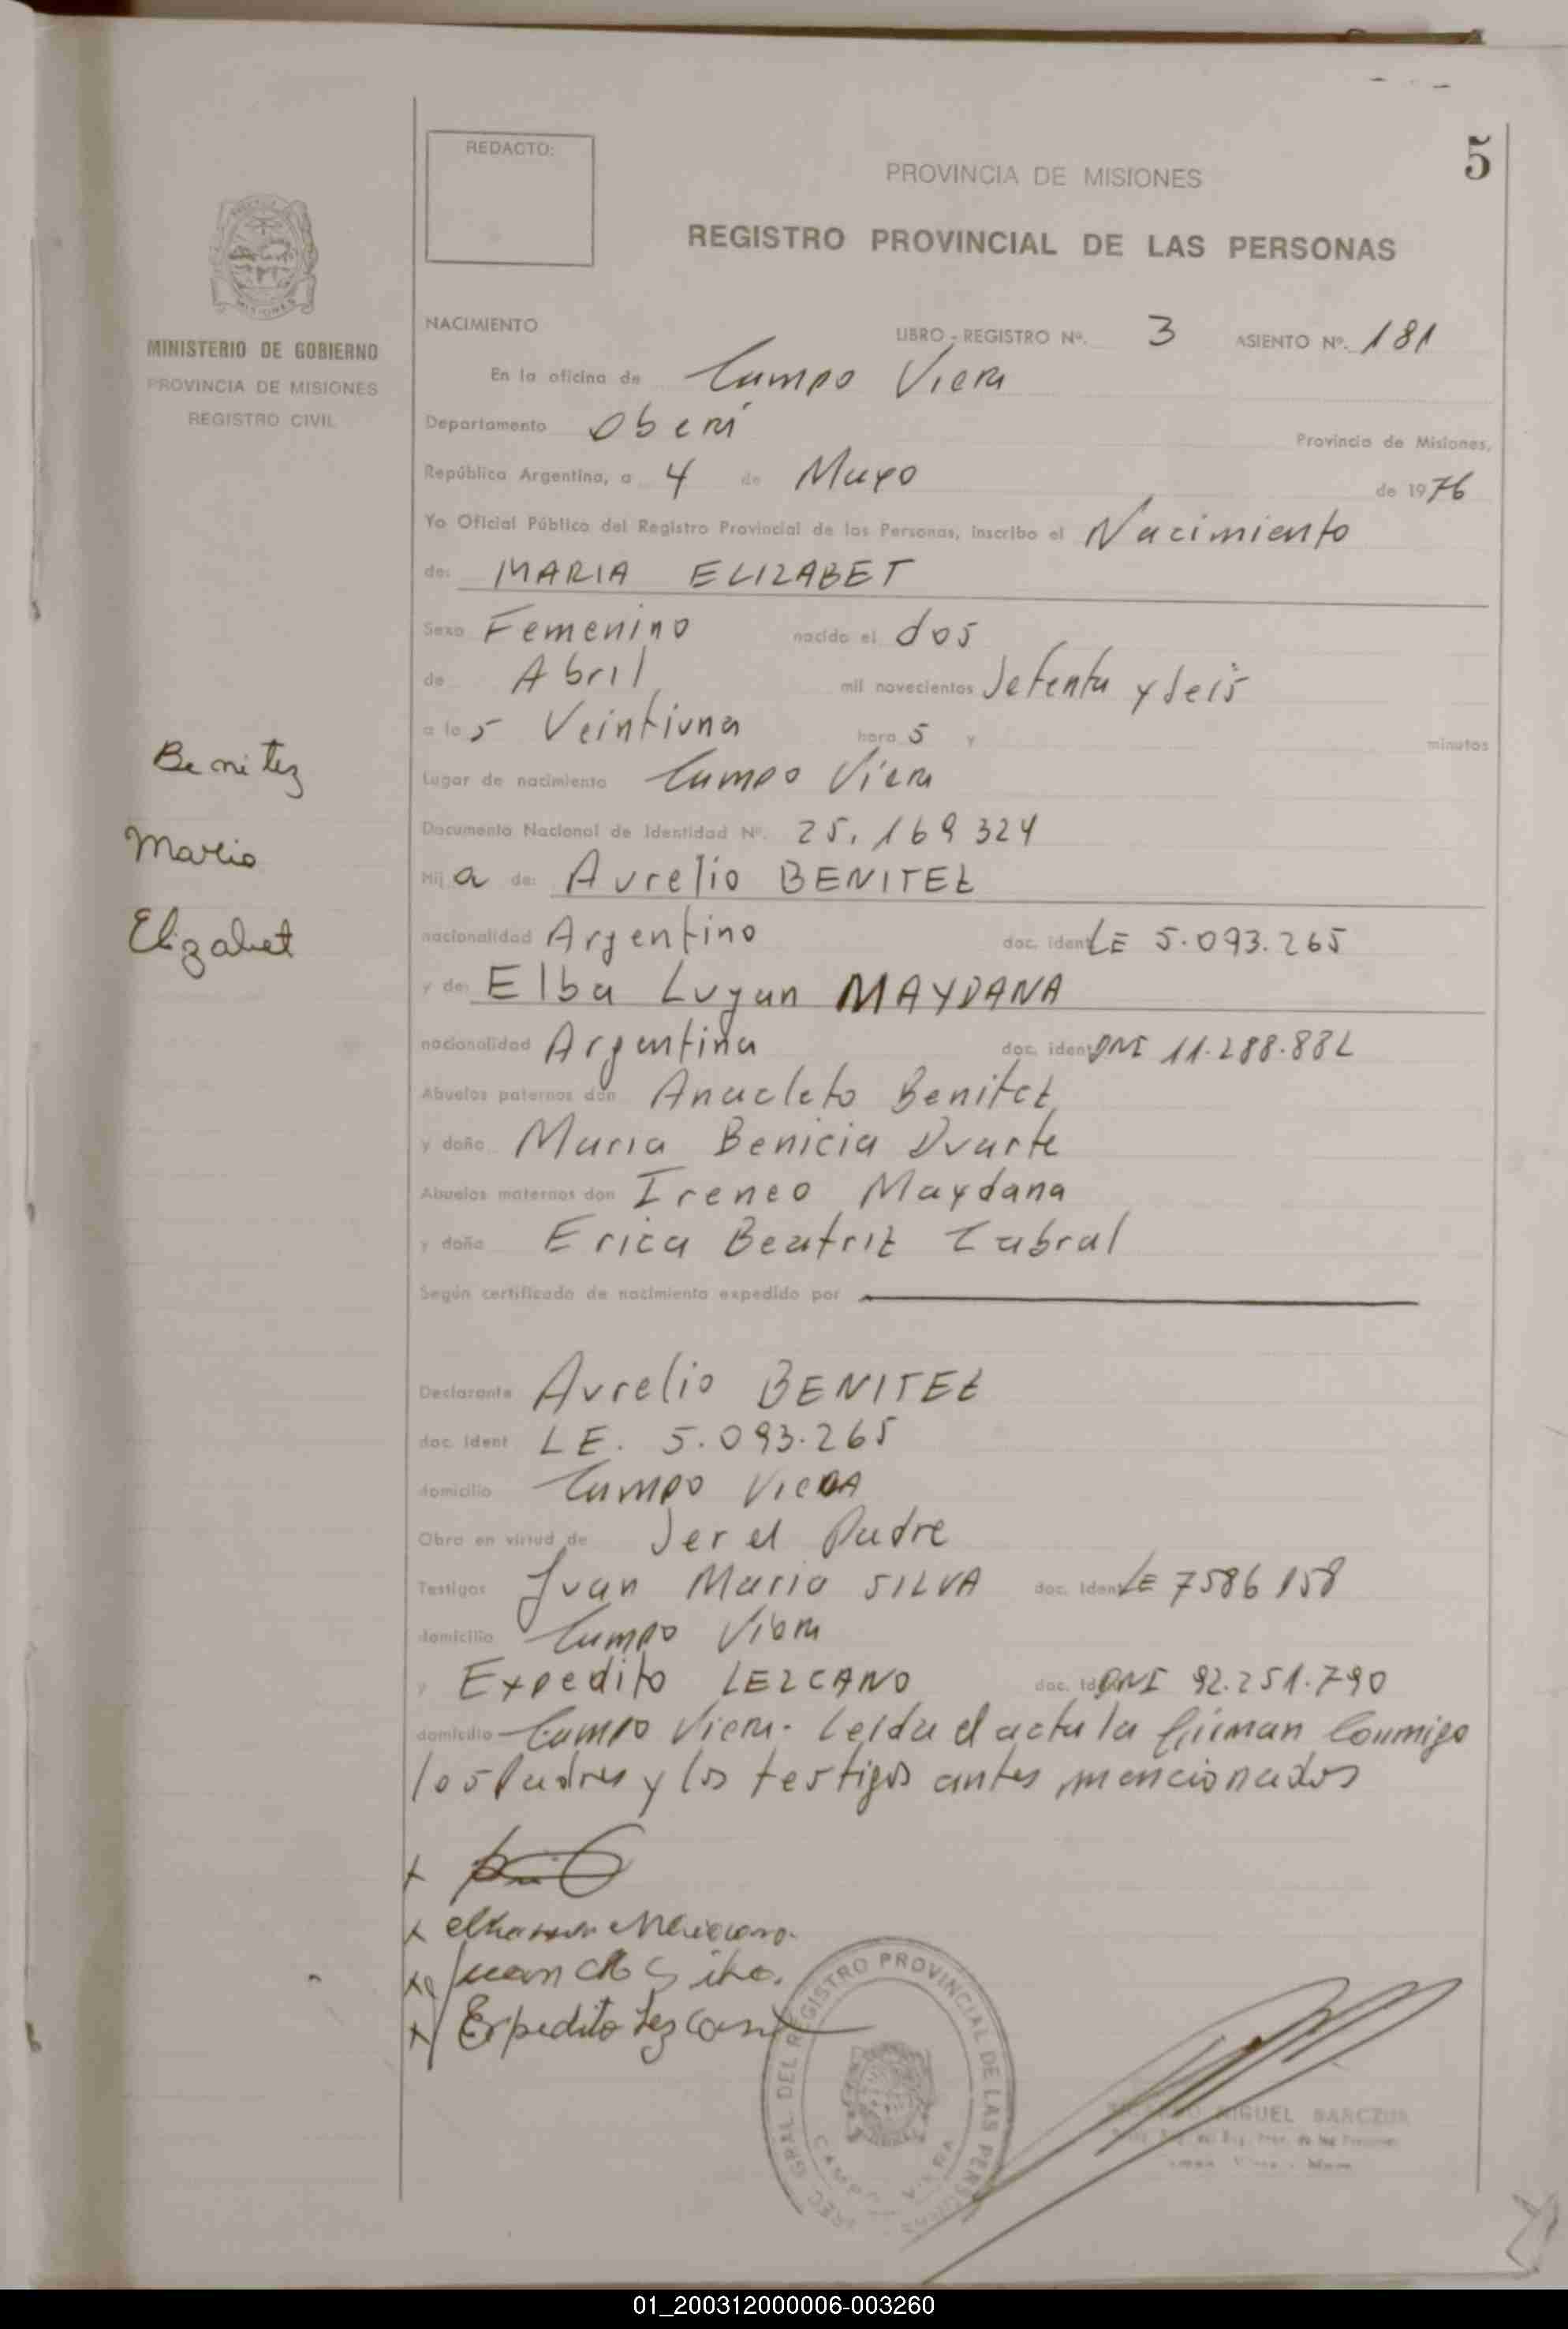 5
REDACTO:
PROVINCIA DE MISIONES
REGISTRO PROVINCIAL DE LAS PERSONAS
MISIONES
MINISTERIO DE GOBIERNO
PROVINCIA DE MISIONES
REGISTRO CIVIL
Benitez
Maria
Elizabet
NACIMIENTO LIBRO - REGISTRO Nº. 3 ASIENTO Nº. 181
En la oficina de Campo Viera
Departamento Oberá Provincia de Misiones,
República Argentina, a 4 de Mayo de 1976
Yo Oficial Público del Registro Provincial de las Personas, inscribo el Nacimiento
de: MARIA ELIZABET
Sexo Femenino nacido el dos
de Abril mil novecientos Setenta y Seis
a las Veintiuna horas y minutos
Lugar de nacimiento Campo Viera
Documento Nacional de Identidad Nº. 25.169324
Hija de: Aurelio BENITEZ
nacionalidad Argentino doc. ident LE 5.093.265
y de Elba Lujan MAYDANA
nacionalidad Argentina doc. ident DNI 11.288.882
Abuelos paternos don Anacleto Benitez
y doña Maria Benicia Duarte
Abuelos maternos don Ireneo Maydana
y doña Erica Beatriz Cabral
Según certificado de nacimiento expedido por
Declarante Aurelio BENITEZ
doc. ident LE. 5.093.265
domicilio Campo Viera
Obra en virtud de Ser el Padre
Testigos Juan Mario SILVA doc. ident LE 7586158
domicilio Campo Viera
y Expedito LEZCANO doc. ident DNI 92.251.790
domicilio Campo Viera. Leída el acta la firman Conmigo
los Padres y los testigos antes mencionados
x
x
x Juan M Silva.
x Expedito Lezcano
DIREC. GRAL. DEL REGISTRO PROVINCIAL DE LAS PERSONAS
CAMPO VIERA
MIGUEL BARCZUK
01_200312000006-003260